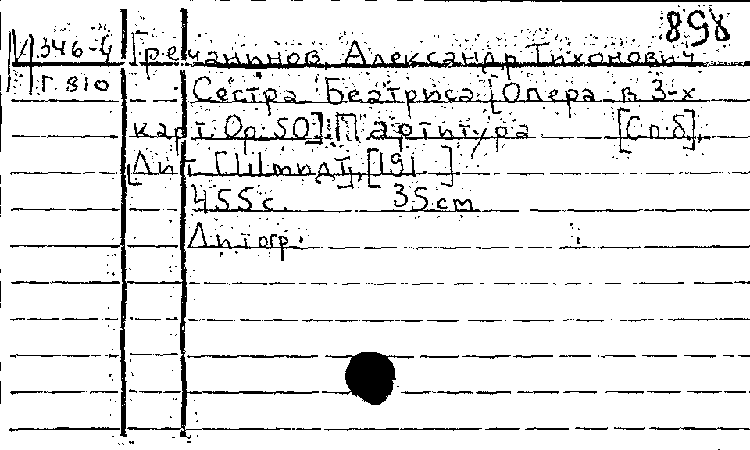 898
М 346-4 Гречанинов, Александр Тихонович
Г 810 Сестра Беатриса [Опера в 3-х
карт. Ор. 50]. Партитура [Спб],
[Лит. Шмидт], [191 ]
455 с. 35 cm
Литогр.